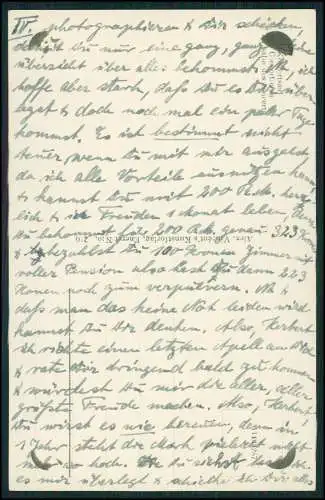 IV. photographieren & Dir schicken,
damit Du nur eine ganz, ganz
Übersicht über alles bekommst. Ah, ich
hoffe aber stark, daß Du es Dir über-
legst & doch noch mal ein paar Tage
kommst. Es ist bestimmt nicht
teuer, wenn Du mit mir ausgehst,
da ich alle Vorteile ausnützen kann,
& kannst Du mit 200 R.M. herr-
lich & in Freuden 1 Monat leben, denn
Du bekommst für 200 M. genau 323 Kronen
& bezahlst Du 100 Kronen Zimmer mit
voller Pension also hast Du dann 223
Kronen noch zum verpulvern.
daß man das keine Not leiden wird
kannst Du Dir denken. Also, Herbert
ich richte einen letzten Apell an Dich
& rate Dir dringend bald zu kommen
& würdest Du mir die aller, aller
größte Freude machen. Also, Herbert!
Du wirst es nie bereuen, denn in
1 Jahr steht die Mark vielleicht nicht
mehr so hoch. Du
es mir überlegt & schicke Dir alles
Alex. Vincent's Kunstforlag, Eneret No.